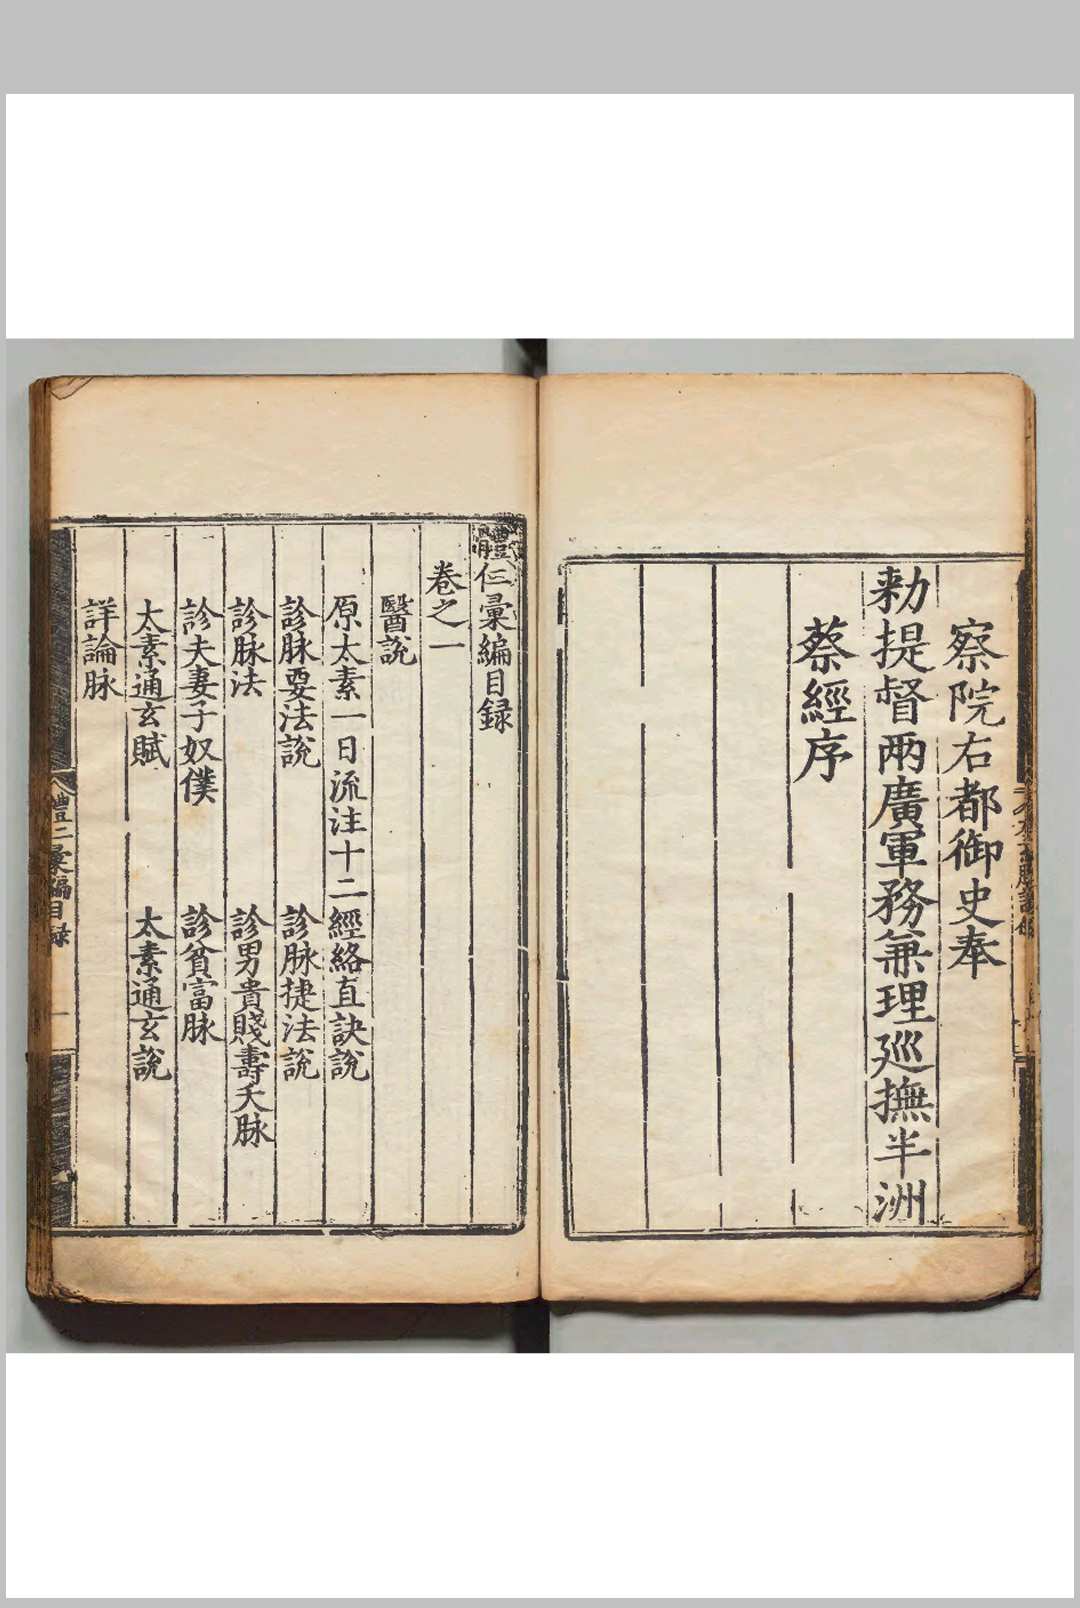 察院右都御史奉
勑提督兩廣軍務兼理廵撫半洲
蔡經序
體仁彚編目録
卷之一
醫説
原太素一日流注十二經絡直訣説
診脉要法説 診脉捷法説
診脉法 診男貴賤壽夭脉
診夫妻子奴僕 診貧富脉
太素通玄賦 太素通玄説
詳論脉
體仁彚編目録 一